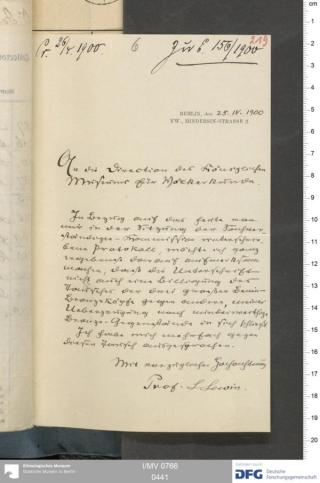 Pr. 26/4. 1900. 6 Zu E. 156/1900
219
BERLIN, den 25. IV. 1900
NW., HINDERSIN-STRASSE 2.
An die Direction des Königlichen
Museums für Völkerkunde.
In Bezug auf das heute von
mir in der Sitzung der Sachver-
ständigen-Kommission unterschrie-
bene Protokoll, möchte ich ganz
ergebenst darauf aufmerksam
machen, dass die Unterschrift
nicht auch eine Billigung des
Tausches der drei grossen Benin-
Bronzeköpfe gegen andere, meiner
Ueberzeugung nach minderwerthige
Bronze-Gegenstände in sich schliesst.
Ich habe mich mehrfach gegen
diesen Tausch ausgesprochen.
Mit vorzüglicher Hochachtung
Prof. L. Lewin.
cm
1
2
3
4
5
6
7
8
9
10
11
12
13
14
15
16
17
18
19
20
Ethnologisches Museum
Staatliche Museen zu Berlin
I/MV 0766
0441
DFG Deutsche
Forschungsgemeinschaft